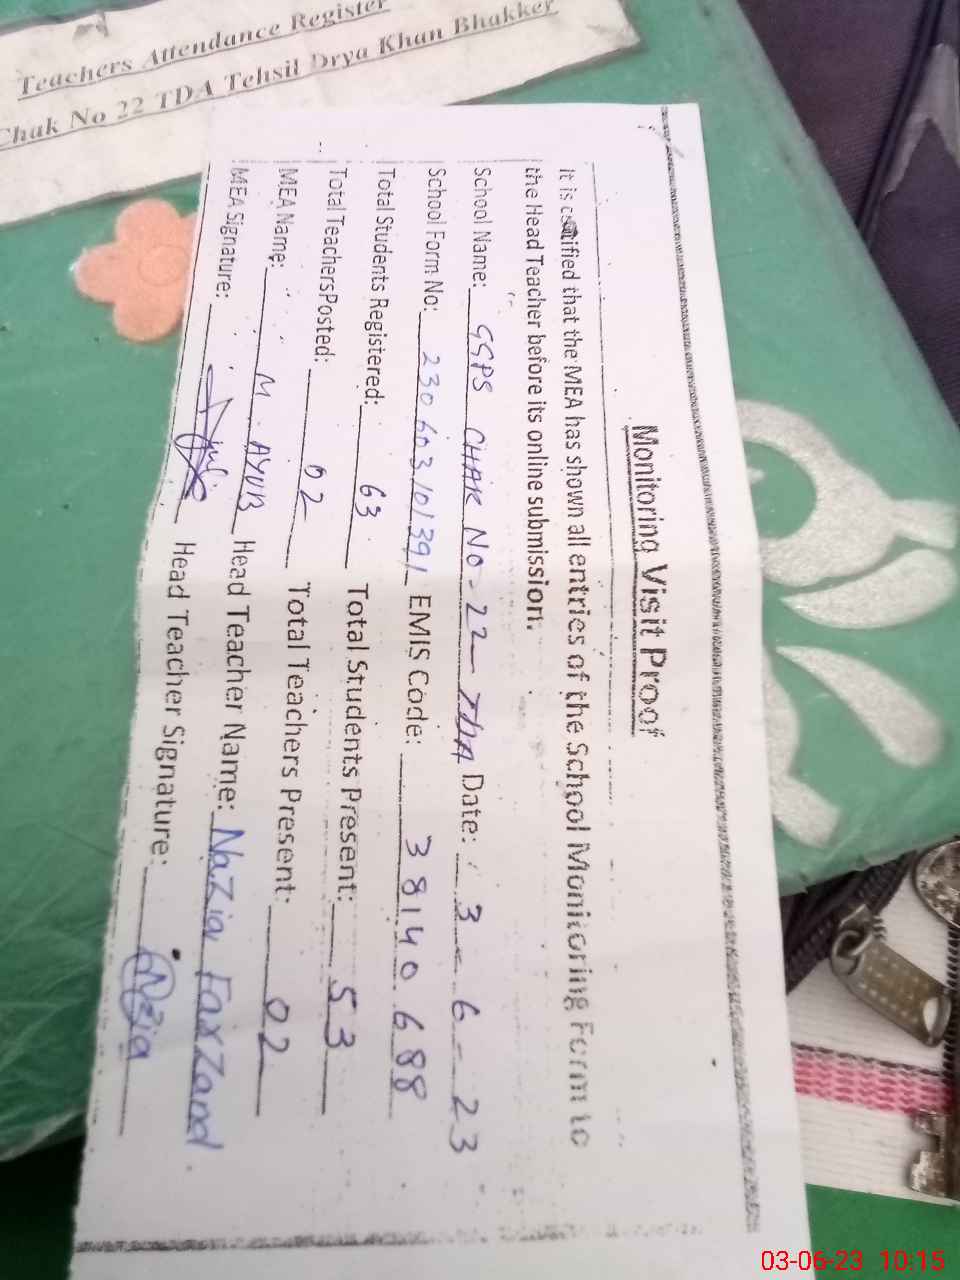 Teachers Attendance Register
Chak No 22 TDA Tehsil Drya Khan Bhakker
Monitoring Visit Proof
It is certified that the MEA has shown all entries of the School Monitoring Form to
the Head Teacher before its online submission.
School Name: GGPS CHAK NO-22-TDA Date: 3-6-23
School Form No: 230603101391 EMIS Code: 38140688
Total Students Registered: 63 Total Students Present: 53
Total TeachersPosted: 02 Total Teachers Present: 02
MEA Name: M. AYUB Head Teacher Name: Nazia FaxZand
MEA Signature: Head Teacher Signature: Nazia
03-06-23 10:15